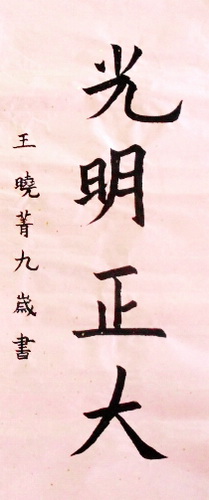 光明正大
王曉菁九歲書